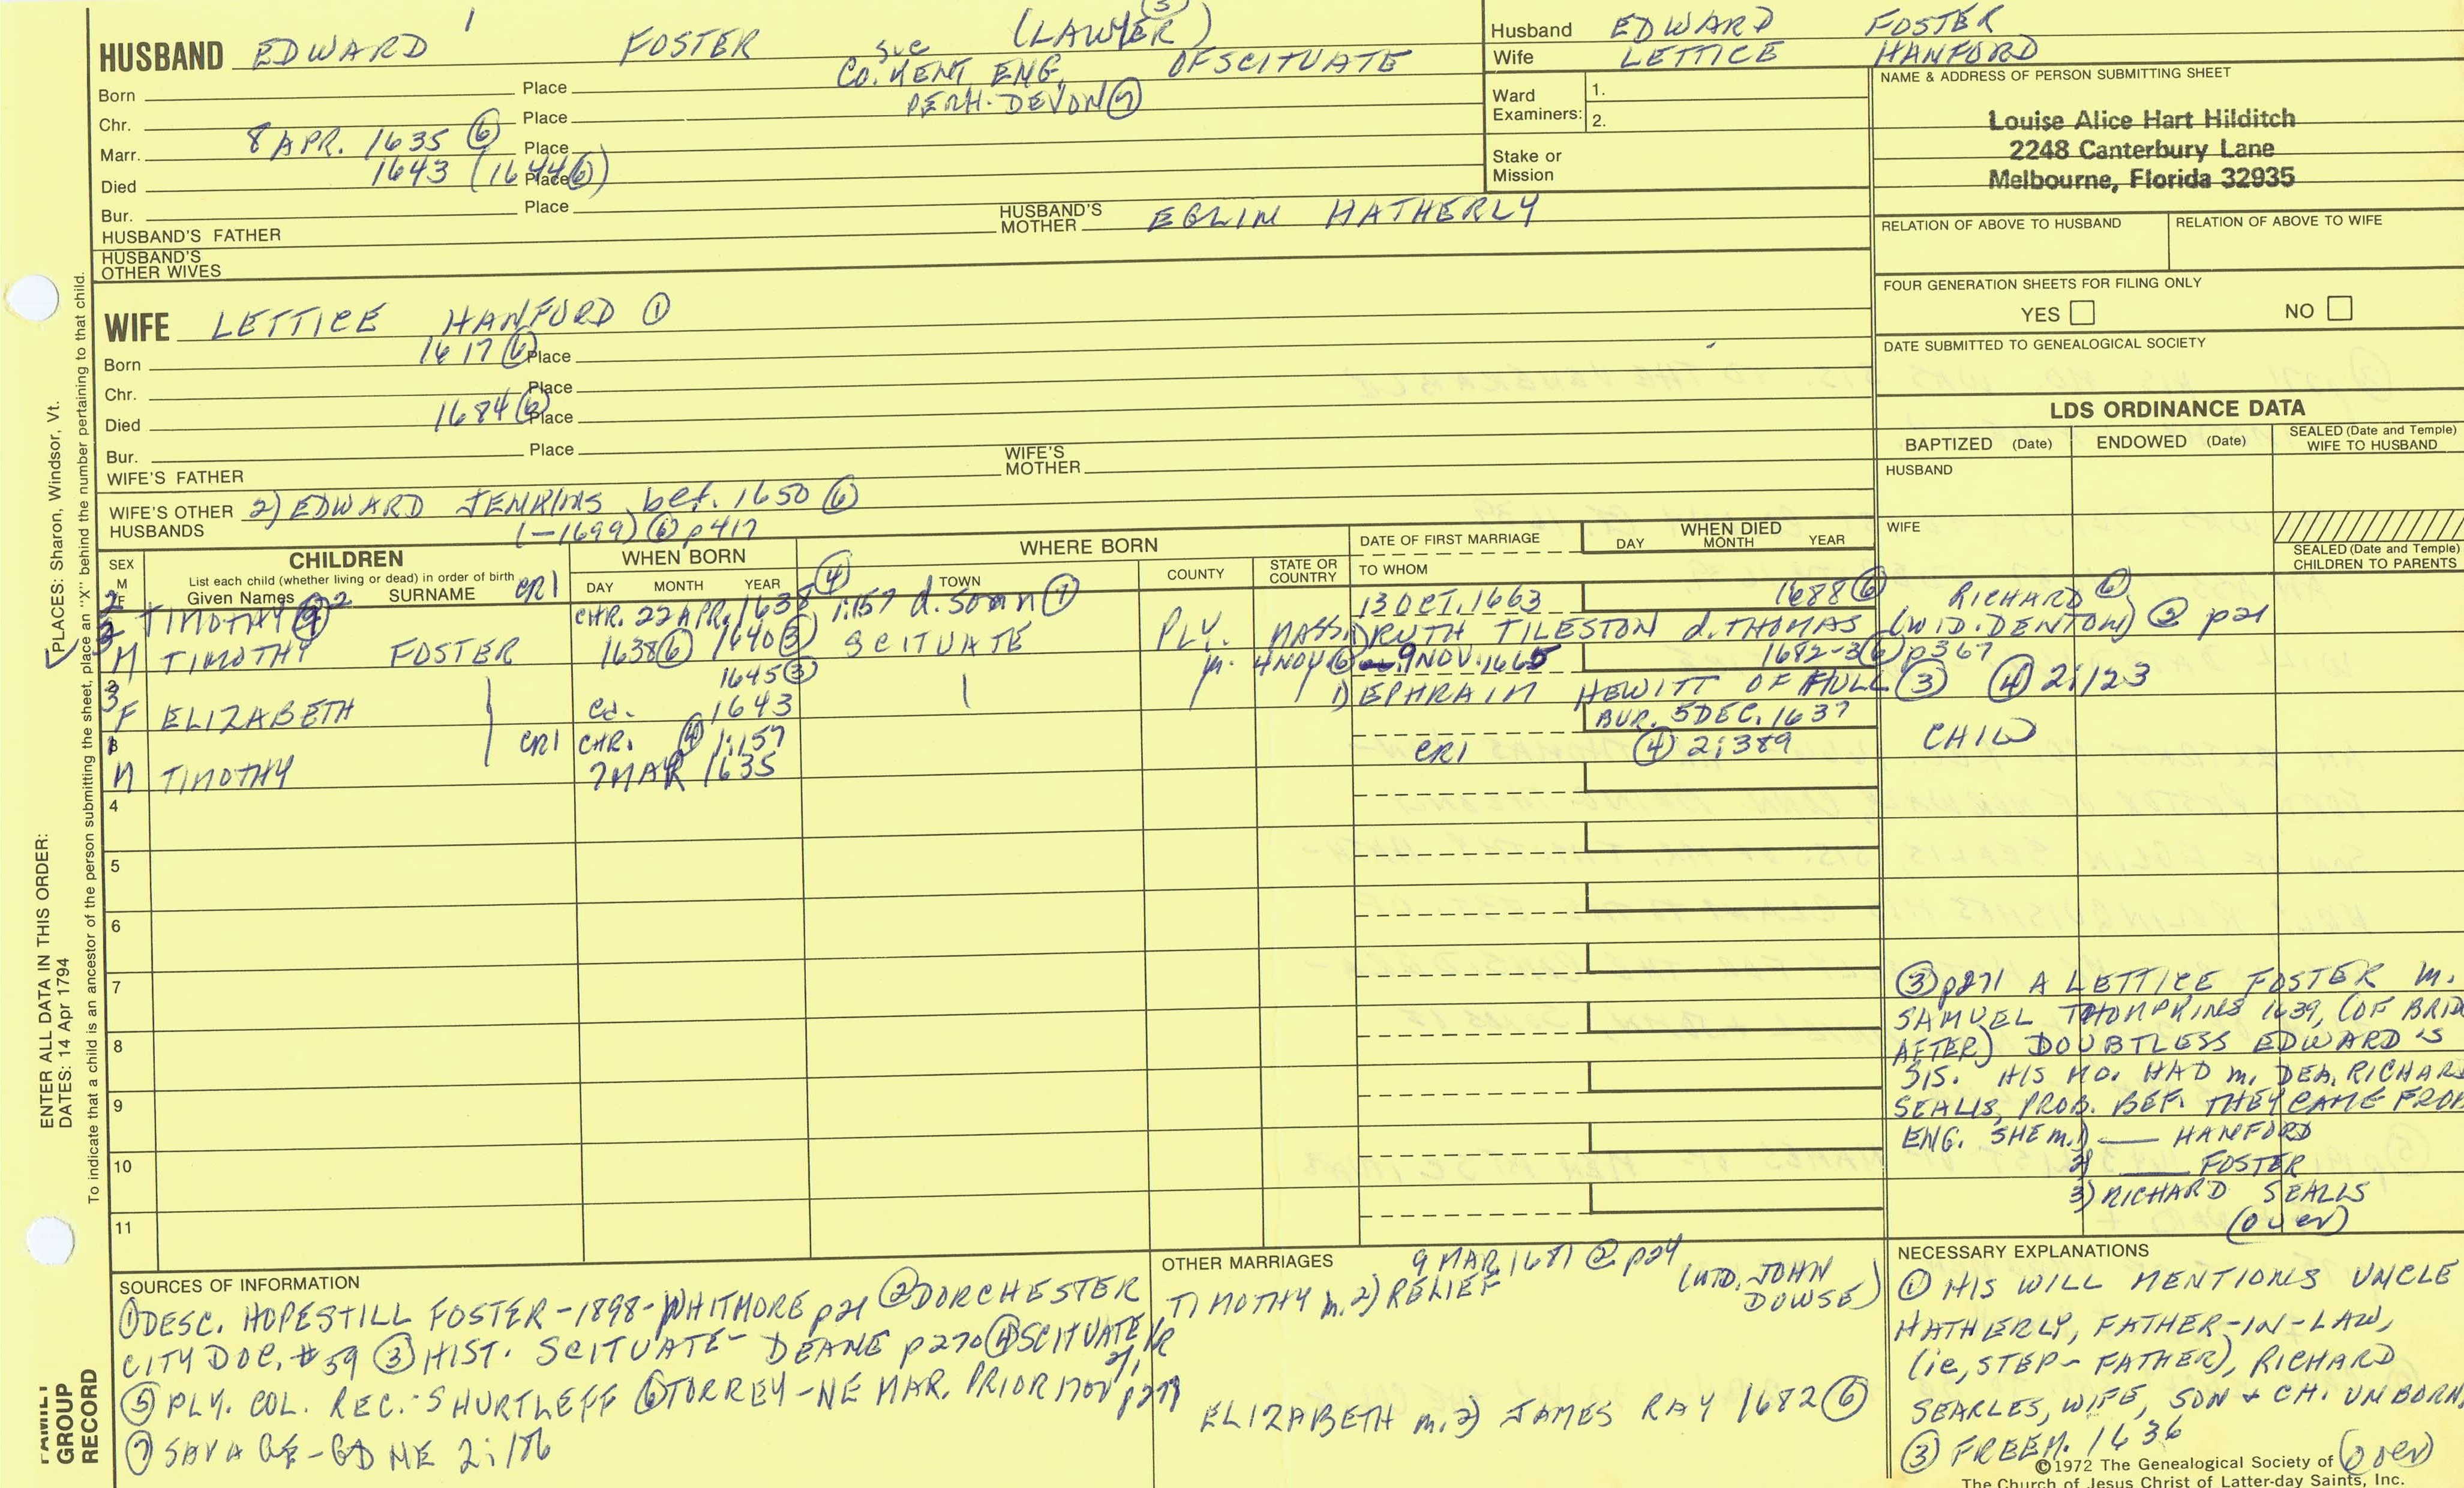 HUSBAND EDWARD 1 FOSTER (LAWYER) (5)
CO. KENT ENG. OF SCITUATE
PERH. DEVON (7)
Born Place
Chr. Place
Marr. 8 APR. 1635 (6) Place
Died 1643 (1644 (6)) Place
Bur. Place
HUSBAND'S FATHER HUSBAND'S MOTHER EGLIN HATHERLY
HUSBAND'S OTHER WIVES
WIFE LETTICE HANFORD (1)
Born 1617 (6) Place
Chr. Place
Died 1684 (6) Place
Bur. Place
WIFE'S FATHER WIFE'S MOTHER
WIFE'S OTHER HUSBANDS 2) EDWARD JENKINS bef. 1650 (6)
(-1699) (6) p417
Husband EDWARD FOSTER
Wife LETTICE HANFORD
Ward Examiners: 1.
2.
Stake or Mission
NAME & ADDRESS OF PERSON SUBMITTING SHEET
Louise Alice Hart Hilditch
2248 Canterbury Lane
Melbourne, Florida 32935
RELATION OF ABOVE TO HUSBAND RELATION OF ABOVE TO WIFE
FOUR GENERATION SHEETS FOR FILING ONLY
YES NO
DATE SUBMITTED TO GENEALOGICAL SOCIETY
LDS ORDINANCE DATA
BAPTIZED (Date) ENDOWED (Date) SEALED (Date and Temple) WIFE TO HUSBAND
HUSBAND
WIFE
SEALED (Date and Temple) CHILDREN TO PARENTS
SEX M F CHILDREN WHEN BORN WHERE BORN DATE OF FIRST MARRIAGE WHEN DIED
List each child (whether living or dead) in order of birth
Given Names SURNAME DAY MONTH YEAR TOWN COUNTY STATE OR COUNTRY TO WHOM DAY MONTH YEAR
2 TIMOTHY 2 CR1 CHR. 22 APR. 1638 (4) 1:157 d. soon (7) 13 OCT. 1663 1688 (6) RICHARD (6)
M TIMOTHY FOSTER 1638 (6) 1640 (3) SCITUATE PLY. MASS. 1) RUTH TILESTON d. THOMAS (WID. DENTON) (2) p21
3 1645 (3) m. 4 NOV (6) 9 NOV. 1665 1682-3 (6) p367
F ELIZABETH ca. 1643 1) EPHRAIM HEWITT OF HULL (3) (4) 2:123
1 CR1 CHR. (4) 1:157 BUR. 5 DEC. 1637
M TIMOTHY 7 MAR 1635 CR1 (4) 2:389 CHILD
4
5
6
7
8
9
10
11
(3) p271 A LETTICE FOSTER m.
SAMUEL THOMPKINS 1639, (OF BRID
AFTER) DOUBTLESS EDWARD'S
SIS. HIS MO. HAD m. DEA. RICHARD
SEALIS, PROB. BEF. THEY CAME FROM
ENG. SHE m. 1) —— HANFORD
2) —— FOSTER
3) RICHARD SEALLS
(over)
SOURCES OF INFORMATION
(1) DESC. HOPESTILL FOSTER-1898-WHITMORE p21 (2) DORCHESTER
CITY DOC. #59 (3) HIST. SCITUATE- DEANE p270 (4) SCITUATE VR
(5) PLY. COL. REC.-SHURTLEFF (6) TORREY-NE MAR. PRIOR 1700
(7) SAVAGE-GD NE 2:186
OTHER MARRIAGES 9 MAR 1681 (2) p24
TIMOTHY m. 2) RELIEF (WID. JOHN DOWSE)
ELIZABETH m. 2) JAMES RAY 1682 (6)
NECESSARY EXPLANATIONS
(1) HIS WILL MENTIONS UNCLE
HATHERLY, FATHER-IN-LAW,
(ie, STEP-FATHER), RICHARD
SEARLES, WIFE, SON + CH. UNBORN,
(3) FREEM. 1636
(over)
©1972 The Genealogical Society of
The Church of Jesus Christ of Latter-day Saints, Inc.
ENTER ALL DATA IN THIS ORDER:
DATES: 14 Apr 1794 PLACES: Sharon, Windsor, Vt.
To indicate that a child is an ancestor of the person submitting the sheet, place an "X" behind the number pertaining to that child.
FAMILY
GROUP
RECORD